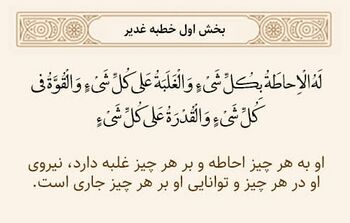 بخش اول خطبه غدیر
لَهُ الْاِحاطَةُ بِكُلِّ شَیْءٍ وَالْغَلَبَةُ عَلی كُلِّ شَیْءٍ وَالْقُوَّةُ فی
كُلِّ شَیْءٍ وَالْقُدْرَةُ عَلی كُلِّ شَیْءٍ
او به هر چیز احاطه و بر هر چیز غلبه دارد، نیروی
او در هر چیز و توانایی او بر هر چیز جاری است.